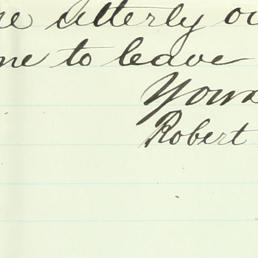 utterly
me to leave
Yours
Robert